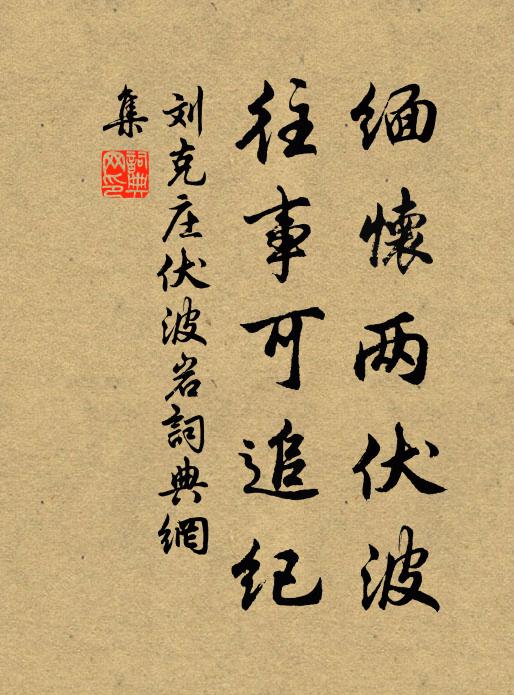 缅懷两伏波
往事可追纪
刘克庄伏波岩詞典網
集
詞典网印